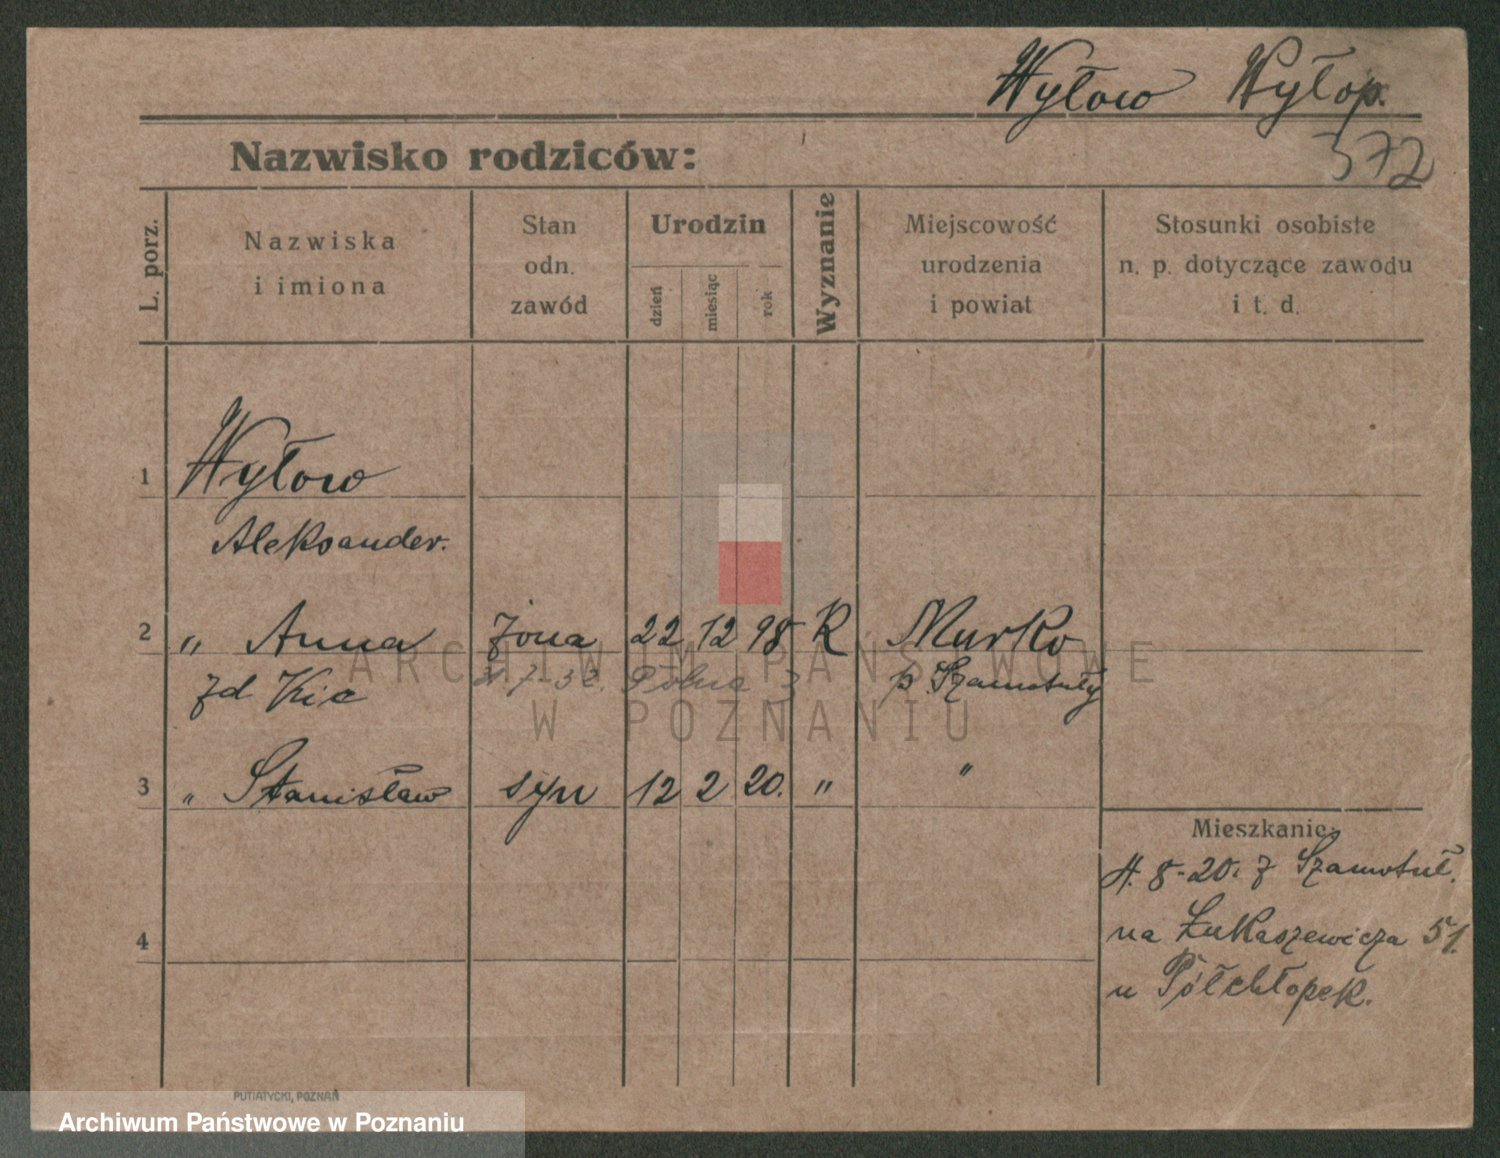 Wyłow Wyłop.
572
Nazwisko rodziców:
L. porz.
Nazwiska
i imiona
Stan
odn.
zawód
Urodzin
dzień
miesiąc
rok
Wyznanie
Miejscowość
urodzenia
i powiat
Stosunki osobiste
n. p. dotyczące zawodu
i t. d.
1 Wyłow
Aleksander.
2 " Anna żona 22 12 98 K Murko
zd Kic 7 32. Polna 3 p. Szamotuły
3 " Stanisław syn 12 2 20. " "
Mieszkanie:
8-20. z Szamotuł.
na Łukaszewicza 51.
u Półchłopek.
4
PUTIATYCKI, POZNAŃ
ARCHIWUM PAŃSTWOWE
W POZNANIU
Archiwum Państwowe w Poznaniu